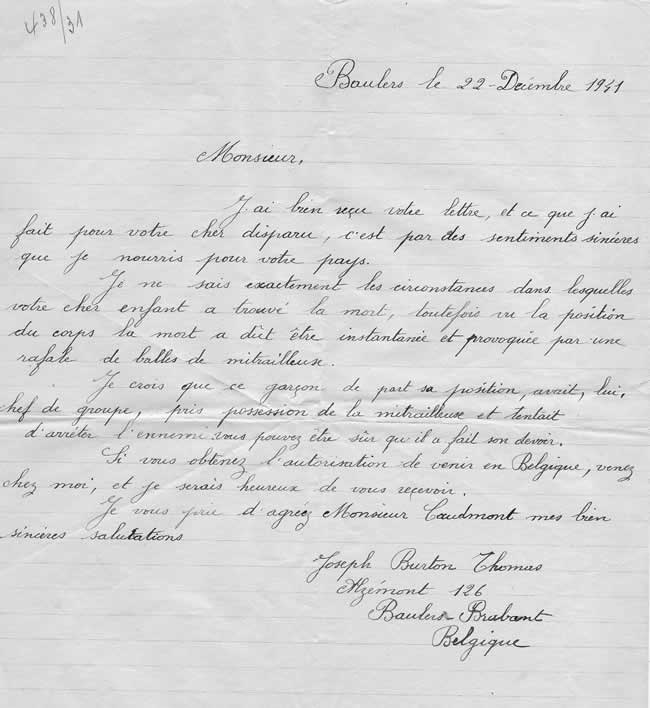 438/31
Baulers le 22-Décembre 1941
Monsieur,
J'ai bien reçu votre lettre, et ce que j'ai
fait pour votre cher disparu, c'est par des sentiments sincères
que je nourris pour votre pays.
Je ne sais exactement les circonstances dans lesquelles
votre cher enfant a trouvé la mort, toutefois vu la position
du corps la mort a dût être instantanée et provoquée par une
rafale de balles de mitrailleuse.
Je crois que ce garçon de part sa position, avait, lui,
chef de groupe, pris possession de la mitrailleuse et tentait
d'arrêter l'ennemi vous pouvez être sûr qu'il a fait son devoir.
Si vous obtenez l'autorisation de venir en Belgique, venez
chez moi, et je serais heureux de vous reçevoir.
Je vous prie d'agreez Monsieur Caudmont mes bien
sincères salutations
Joseph Burton Thomas
126
Baulers-Brabant
Belgique